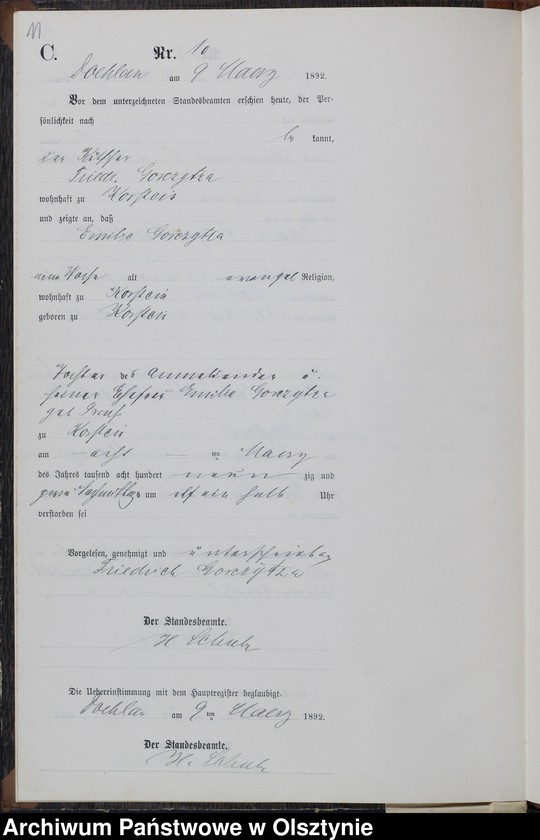 11
C. Nr. 10
Doehlau am 9 Maerz 1892.
Vor dem unterzeichneten Standesbeamten erschien heute, der Per-
sönlichkeit nach
be kannt,
der
Friedr. Gorzytza
wohnhaft zu Korstein
und zeigte an, daß
Emilie Gorzytza
eine Woche alt evangel Religion,
wohnhaft zu Korstein
geboren zu Korstein
Tochter des Anmeldenden u.
seiner Ehefrau Emilie Gorzytza
geb
zu Korstein
am acht ten Maerz
des Jahres tausend acht hundert neun zig und
zwei Nachmittags um elf ein halb Uhr
verstorben sei
Vorgelesen, genehmigt und unterschrieben
Friedrich Gorzytza
Der Standesbeamte.
H Schulz
Die Uebereinstimmung mit dem Hauptregister beglaubigt.
Doehlau am 9 ten Maerz 1892.
Der Standesbeamte.
H. Schulz
Archiwum Państwowe w Olsztynie